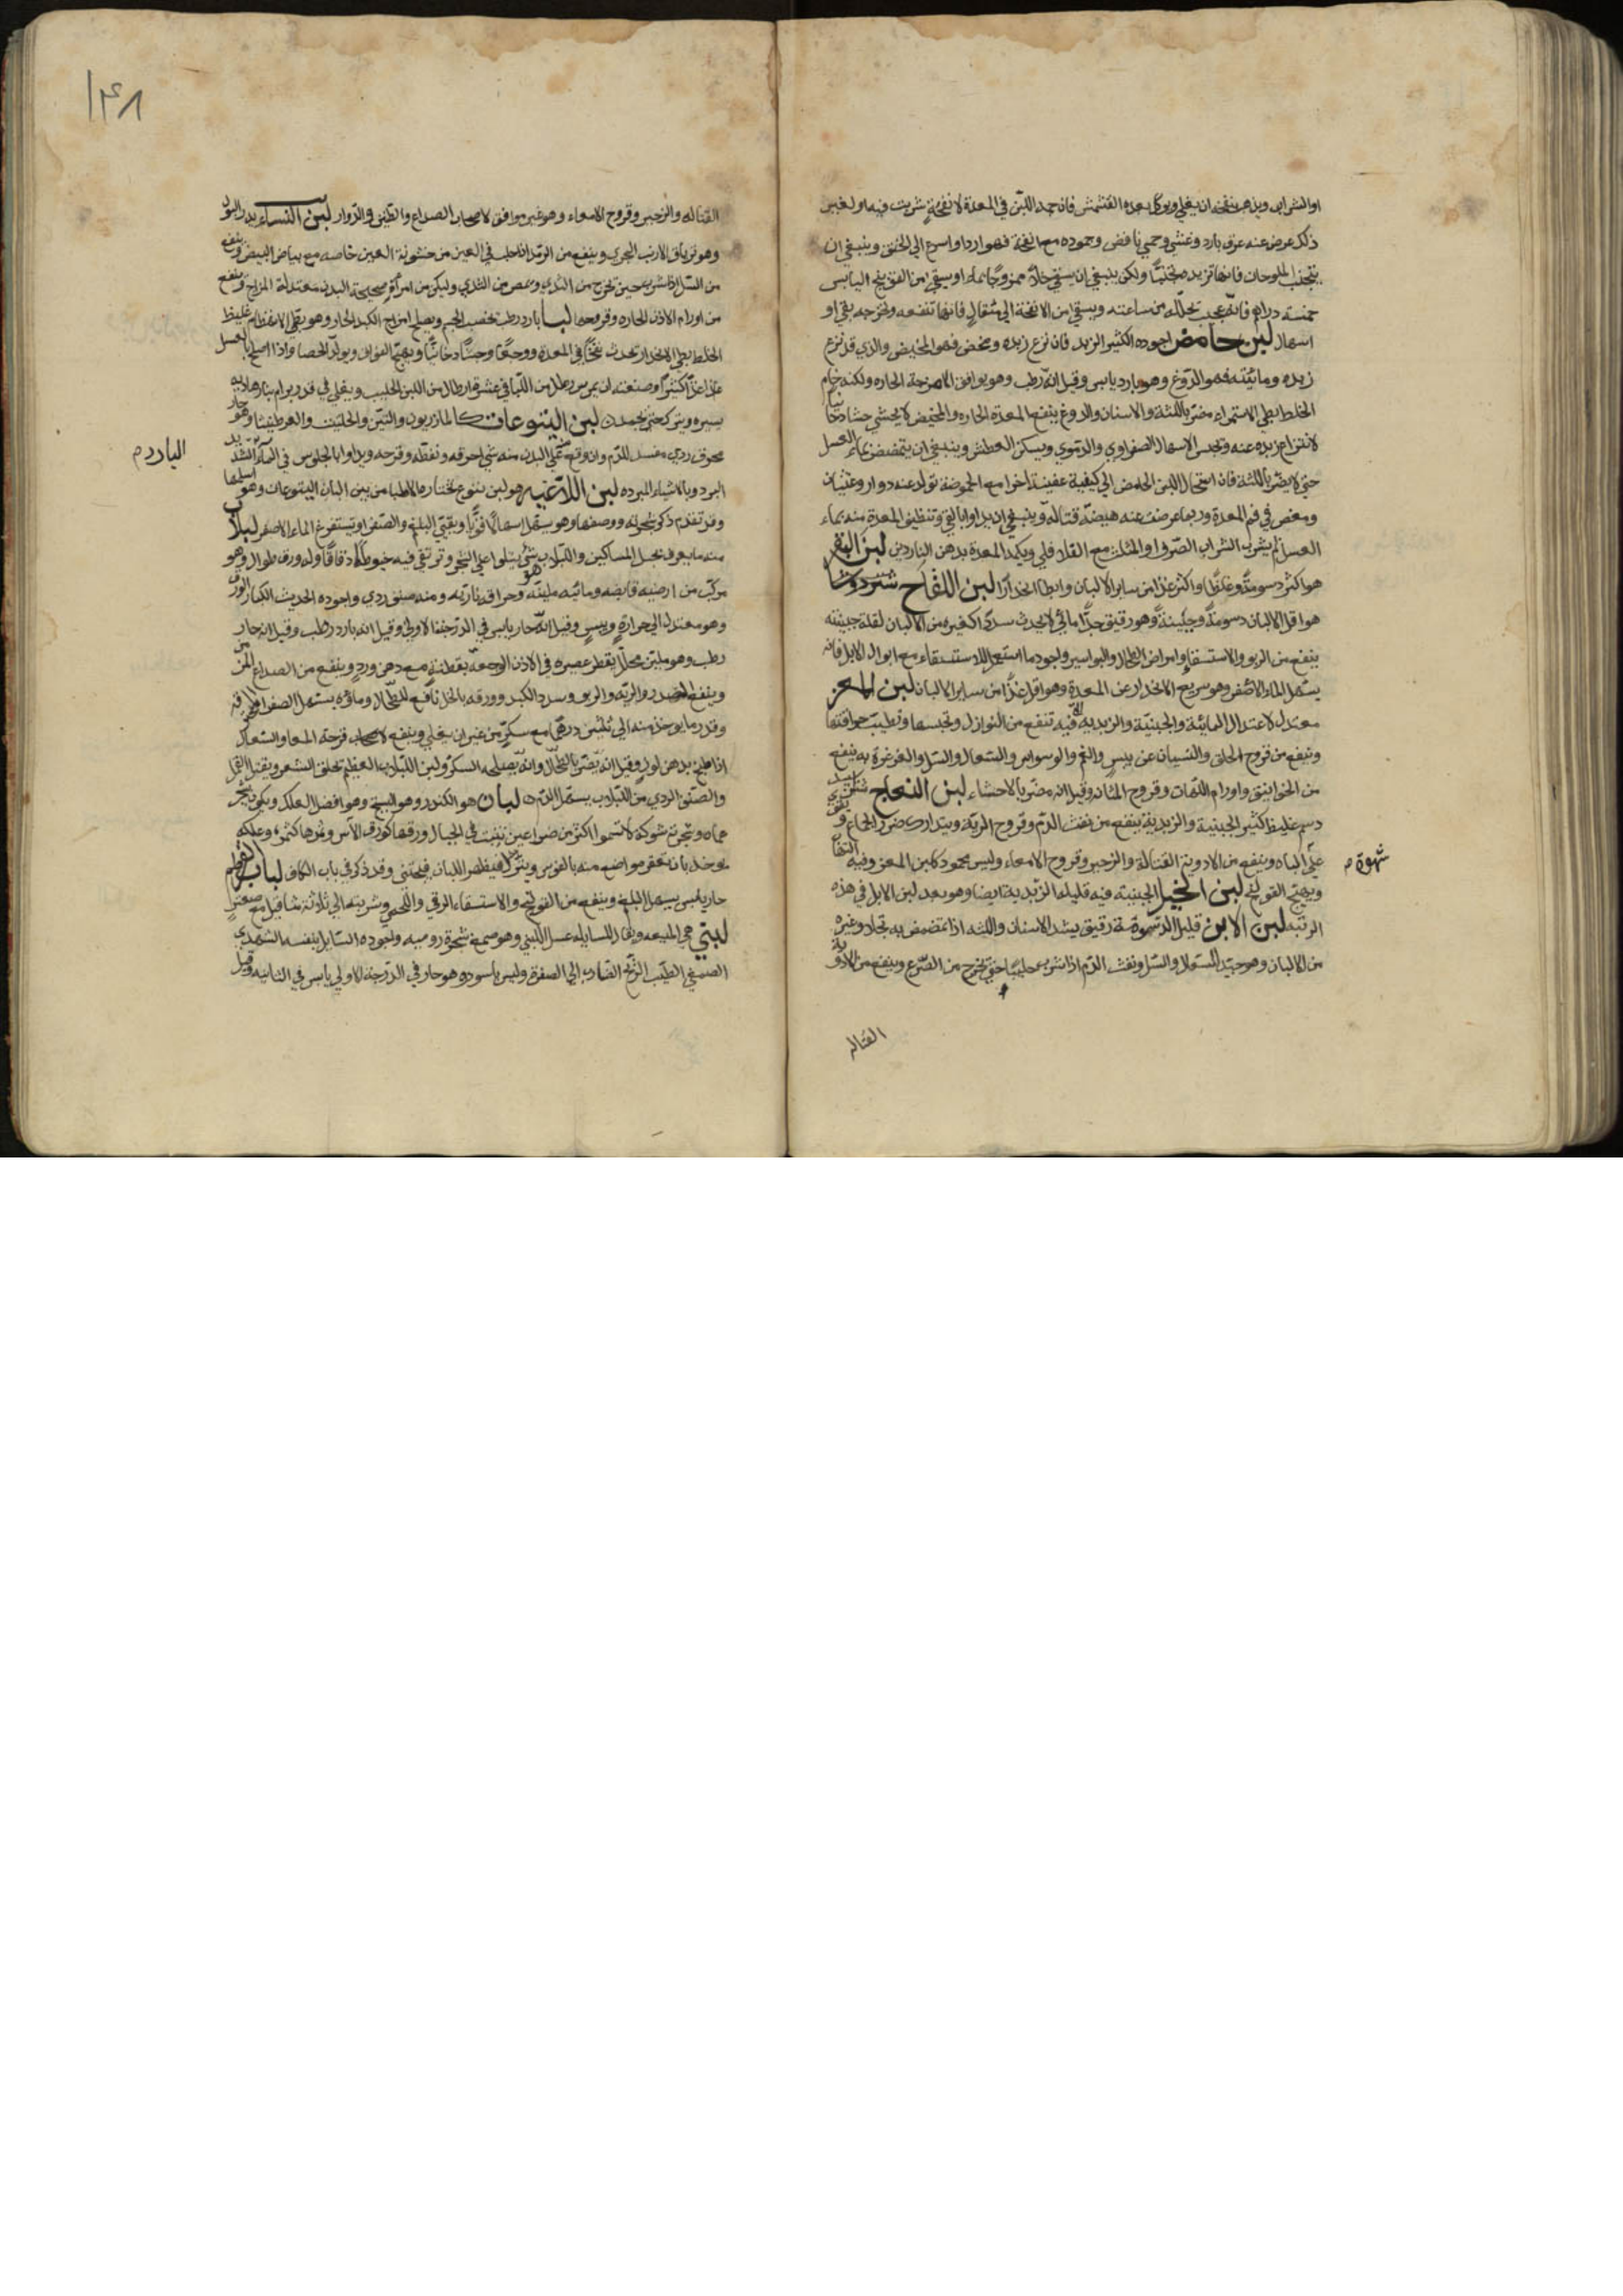 او الشراب ويذهب نفخه ان يغلي ويوكل بعده المشمش فان جمد اللبن في المعدة لانفحة شربت فيه او لغير
ذلك عرض عنه عرق بارد وغشي وحمى نافض وجموده مع انفحة فهو اردا واسرع الى الخنق وينبغي ان
يتجنب الملوحات فانها تزيد تجبنا ولكن ينبغي ان يسقى خلا ممزوجا بماء او يسقى من الفوتنج اليابس
خمسة دراهم فانه عجيب يحلله من ساعته ويسقى من الانفحة الى مثقال فانها تنفعه وتخرجه بقي او
اسهال لبن حامض اجوده الكثير الزبد فان نزع زبده ومخض فهو المخيض والذي قد نزع
زبده ومائيته فهو الدوغ وهو بارد يابس وقيل انه رطب وهو يوافق الامزجة الحاره ولكنه خام
الخلط بطي الاستمراء مضر باللثة والاسنان والدوغ ينفع المعدة الحاره والمخيض لا يجشي جشا دخانيا
لانتزاع زبده عنه ويحبس الاسهال الصفراوي والدموي ويسكن العطش وينبغي ان يتمضمض بماء العسل
حتى لا يضر باللثة فان استحال اللبن الحامض الى كيفية عفينة اخرا مع الحموضة تولد عنه دوار وغثيان
ومغص في فم المعدة وربما عرضت عنه هيضة قتالة وينبغي ان يداوا بالقي وتنظيف المعدة منه بماء
العسل ثم يشرب الشراب الصرف او المثلث مع الفلافلي ويكمد المعدة بدهن الناردين لبن البقر
هو اكثر دسومة وغلظا واكثر غذا من ساير الالبان وابطا انحدارا لبن اللقاح
هو اقل الالبان دسومة وجبنية وهو رقيق جدا مائي لا يحدث سددا كغيره من الالبان لقلة جبنيته
ينفع من الربو والاستسقا وامراض الطحال والبواسير واجود ما استعمل للاستسقاء مع ابوال الابل فانه
يسهل الماء الاصفر وهو سريع الانحدار عن المعدة وهو اقل غذا من ساير الالبان لبن المعز
معتدل لاعتدال المائية والجبنية والزبدية فيه تنفع من النوازل وتحبسها
وينفع من قروح الحلق والنسيان عن يبس والغم والوسواس والسعال والسل والغرغرة به ينفع
من الخوانيق واورام اللهات وقروح المثانه وقيل انه مضر بالاحشاء لبن النعاج
دسم غليظ كثير الجبنية والزبدية ينفع من نفث الدم وقروح الرية ويتدارك ضرر الجماع
على الباه وينفع من الادوية القتالة والزحير وقروح الامعاء وليس محمود كلبن المعز وفيه
ويهيج القولنج لبن الخيل الجبنية فيه قليله الزبدية ايضا وهو بعد لبن الابل في هذه
الرتبه لبن الاتن قليل الدسومة رقيق يشد الاسنان واللثه اذا تمضمض به بخلاف غيره
من الالبان وهو جيد للسعال والسل ونفث الدم اذا شرب حليبا حين يخرج من الضرع وينفع من الادوية
شهوة م
القتاله
١٤٨
القتاله والزحير وقروح الامعاء وهو غير موافق لاصحاب الصداع والطنين والدوار لبن النساء يدر البول
وهو ترياق الارنب البحري وينفع من الرمد اذا حلب في العين من خشونة العين خاصه مع بياض البيض وينفع
من السل اذا شرب حين تخرج من الثدي ومص من الثدي وليكن من امراة صحيحة البدن معتدلة المزاج وينفع
من اورام الاذن الحاره وقروحها لبا بارد رطب يخصب الجسم ويصلح مزاج الكبد الحار وهو بطي الانهضام غليظ
الخلط بطي الانحدار يحدث تخما في المعدة ووجعا وجشاء دخانيا ويهيج الفواق ويولد الحصا واذا اصلح بالعسل
غذا غذا كثيرا وصنعته ان يمرس رطل من اللبا في عشرة ارطال من اللبن الحليب ويغلى في قدر برام بنار هاديه
يسيره ويترك حتى يجمد لبن اليتوعات كالمازريون والتين والحلتيت والعرطنيثا وهو حار
محرق ردي مفسد للدم وان وقع على البدن منه شي احرقه ونفطه وقرحه ويداوا بالجلوس في الماء الشديد
الباردم
البرد وبالاشياء المبرده لبن اللاعيه هو لبن يتوع يختاره الاطبا من بين البان اليتوعات وهو اسلمها
وقد تقدم ذكر شجرته ووصفها وهو يسهل اسهالا قويا ويقيي البلغم والصفرا ويستفرغ الماء الاصفر لبلاب
منه ما يعرف بحبل المساكين واللبلاب شي يتلوا على الشجر وترتقي فيه خيوطا دقاقا وله ورق طوال وهو
مركب من ارضيه قابضه ومائيه ملينه وحرافه ناريه ومنه صنف ردي واجوده الحديث الكبار الورق
وهو معتدل الى حرارة ويبس وقيل انه حار يابس في الدرجة الاولى وقيل انه بارد رطب وقيل انه حار
رطب وهو ملين محلل يقطر عصيره في الاذن الوجعه بقطنة مع دهن ورد وينفع من الصداع المزمن
وينفع الصدر والرية والربو وسدد الكبد وورقه بالخل نافع للطحال وماؤه يسهل الصفرا المحرقه
وقدر ما يوخذ منه الى ثلثين درهما مع سكر من غير ان يغلي وينفع لاصحاب قرحة المعا والسعال
اذا طبخ بدهن لوز وقيل انه يضر بالطحال وانه يصلحه السكر ولبن اللبلاب العظيم تحلق الشعر ويقتل القمل
والصنف الردي من اللبلاب يسهل الدم لبان هو الكندر وهو البستج وهو افضل العلك ويكون بشحر
عمان وشجرته شوكة لا تسموا اكثر من ذراعين تنبت في الجبال ورقها كورق الآس وثمرها كثمره وعلكه
يوخذ بان تعقر مواضع منه بالفوس ويترك فيظهر اللبان فيجتنى وقد ذكر في باب الكاف لباب القرطم
حار يابس يسهل البلغم وينفع من القولنج والاستسقاء الزقي واللحمي وشربته الى ثلاثة مثاقيل مع
لبني هي الميعه ويقال للسايله عسل اللبنى وهو صمغ شجرة روميه واجوده السايل بنفسه الشهدي
الصمغي الطيب الريح الضارب الى الصفرة وليس باسود وهو حار في الدرجة الاولى يابس في الثانيه وقيل